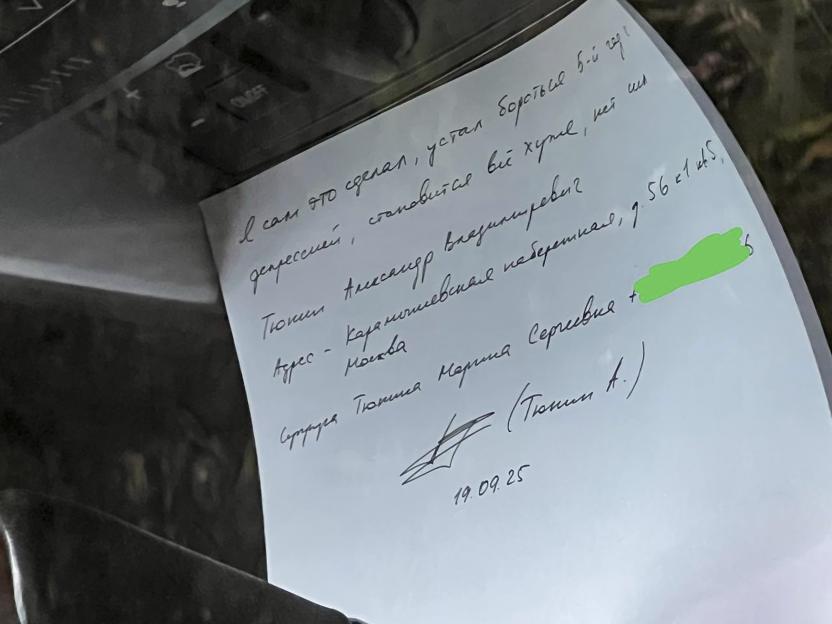 ON/OFF
Я сам это сделал, устал бороться 5-й год
депрессией, становится всё хуже, нет сил
Тюнин Александр Владимирович
Адрес - Карамышевская набережная, д. 56 к1 кв5,
Москва
Супруга Тюнина Марина Сергеевна +
(Тюнин А.)
19.09.25